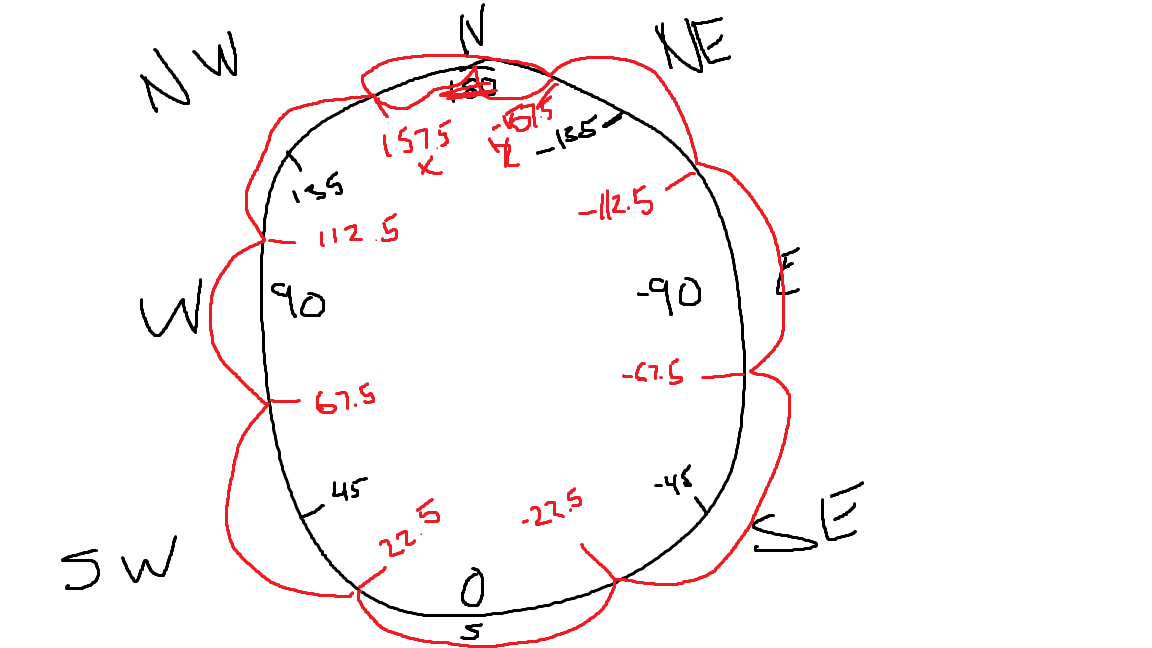 N
NW
NE
157.5
x
-135
135
-112.5
112.5
W
90
-90
E
67.5
-67.5
45
-45
22.5
-22.5
SW
0
SE
S